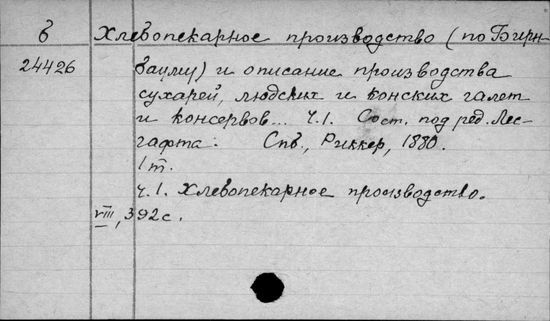 б Хлебопекарное производство (по Бирн
24426 бауму) и описание производства
сухарей, людских и конских галет
и консервов... Ч.1. Сост. под ред. Лес-
гафта. Спб., Риккер, 1880.
1 т.
Ч.1. Хлебопекарное производство.
VIII, 392с.